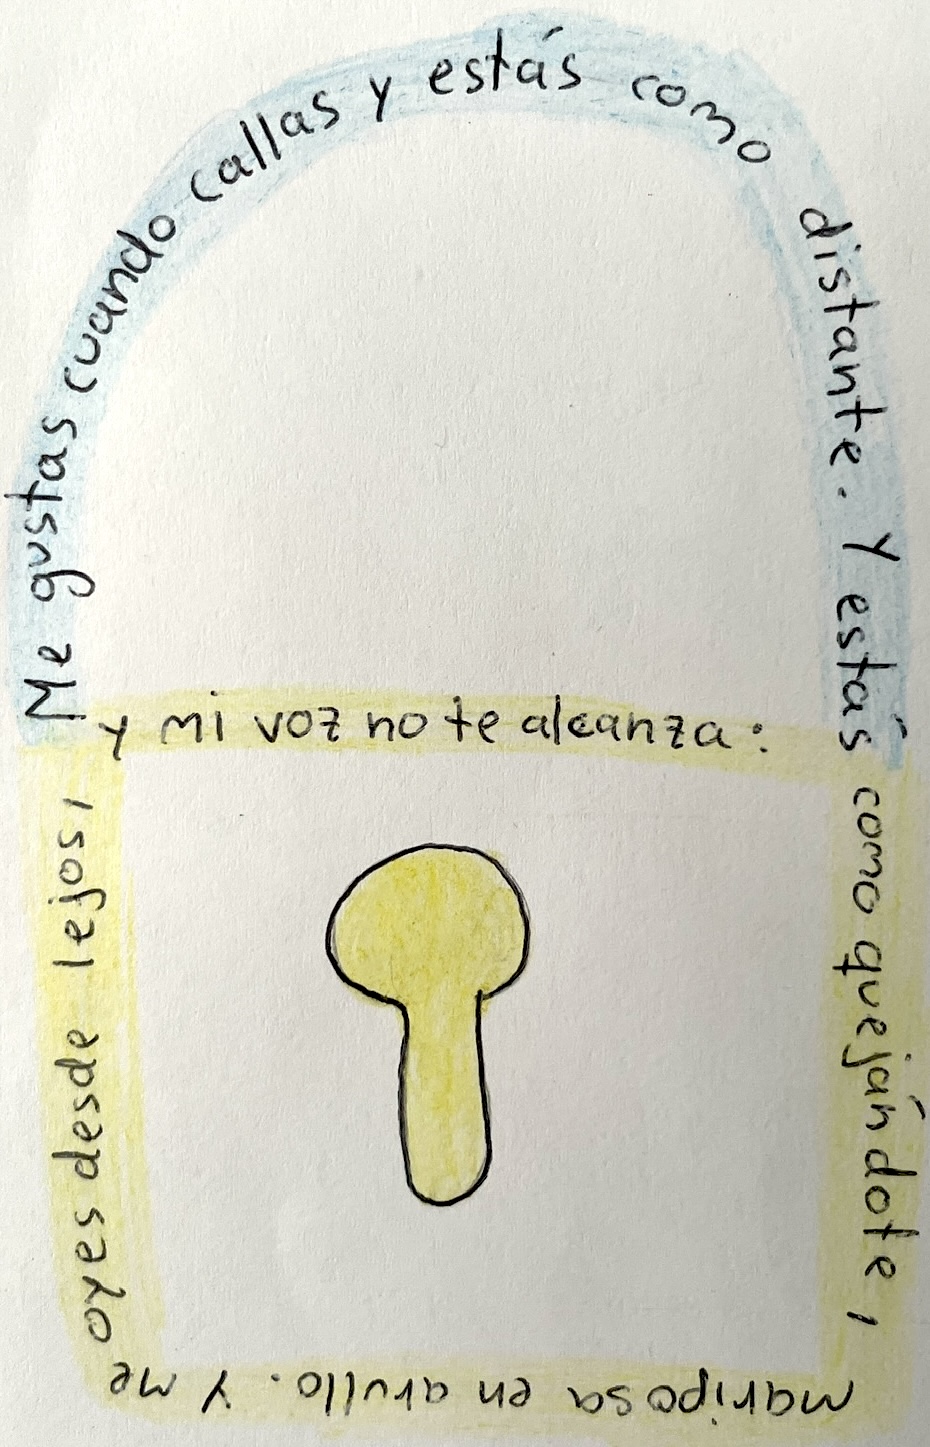 Me gustas cuando callas y estás como distante. Y estás
como quejándote,
mariposa en arullo. Y me
oyes desde lejos,
y mi voz no te alcanza: